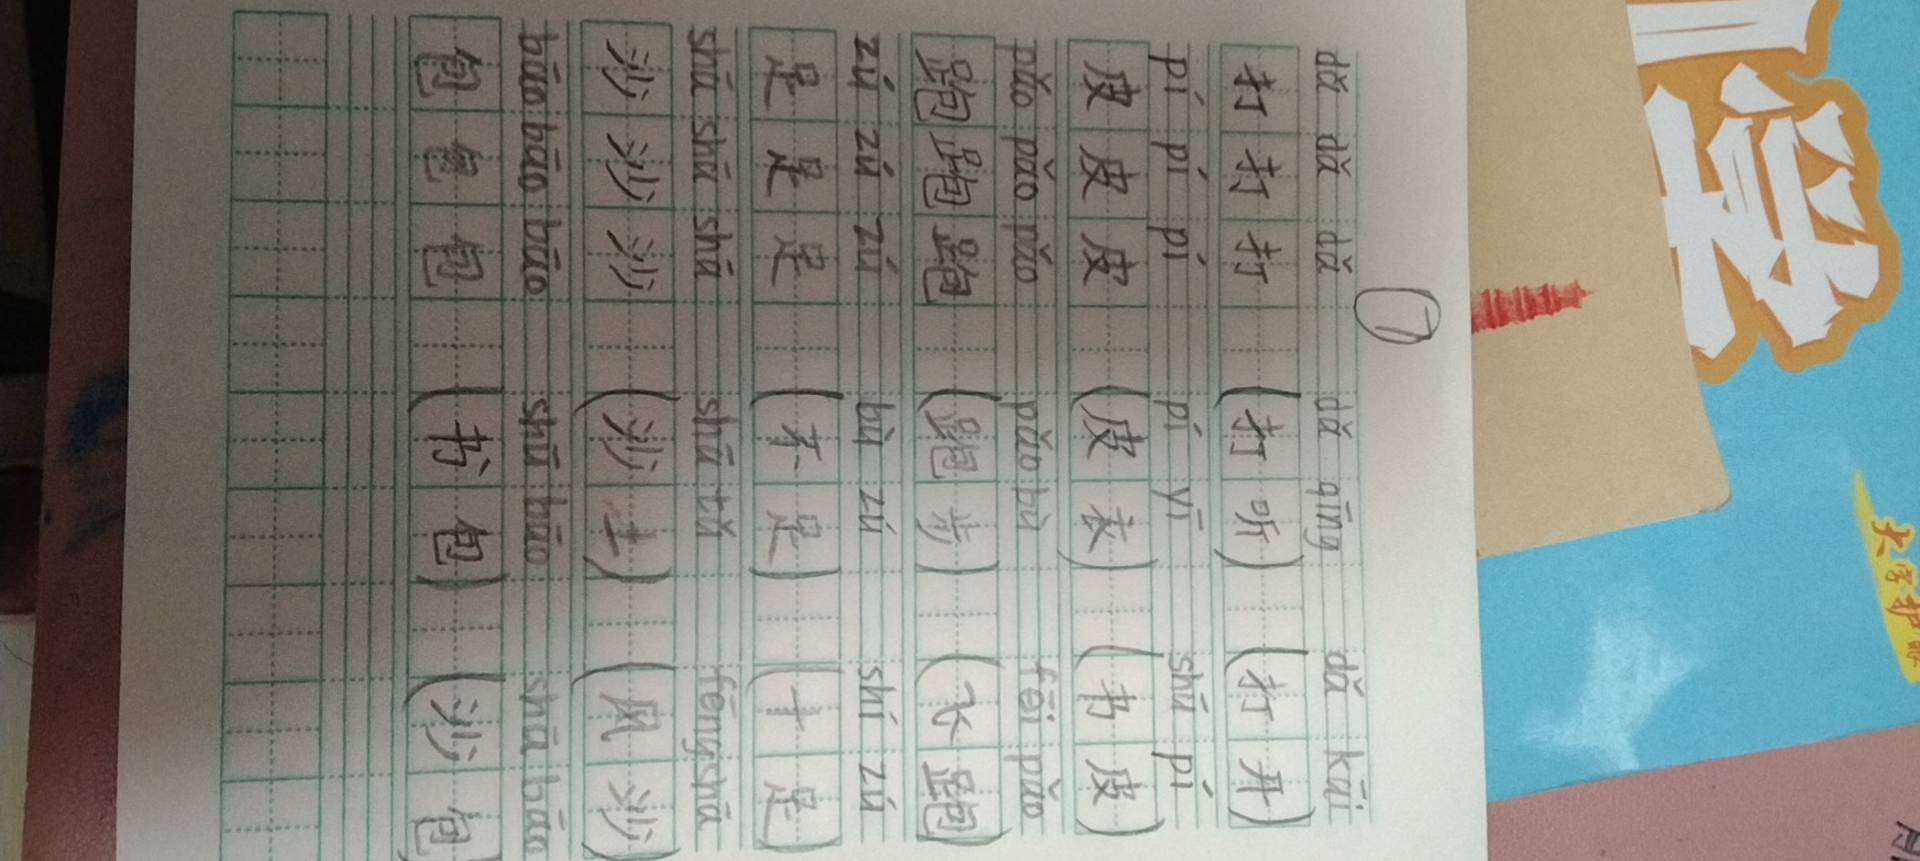 7
dǎ dǎ dǎ dǎ qīng dǎ kāi
打打打(打听)(打开)
pí pí pí pí yī shū pí
皮皮皮(皮衣)(书皮)
pǎo pǎo pǎo pǎo bù fēi pǎo
跑跑跑(跑步)(飞跑)
zú zú zú bù zú shí zú
足足足(不足)(十足)
shā shā shā shā tǔ fēng shā
沙沙沙(沙土)(风沙)
bāo bāo bāo shū bāo shā bāo
包包包(书包)(沙包)
大字护眼